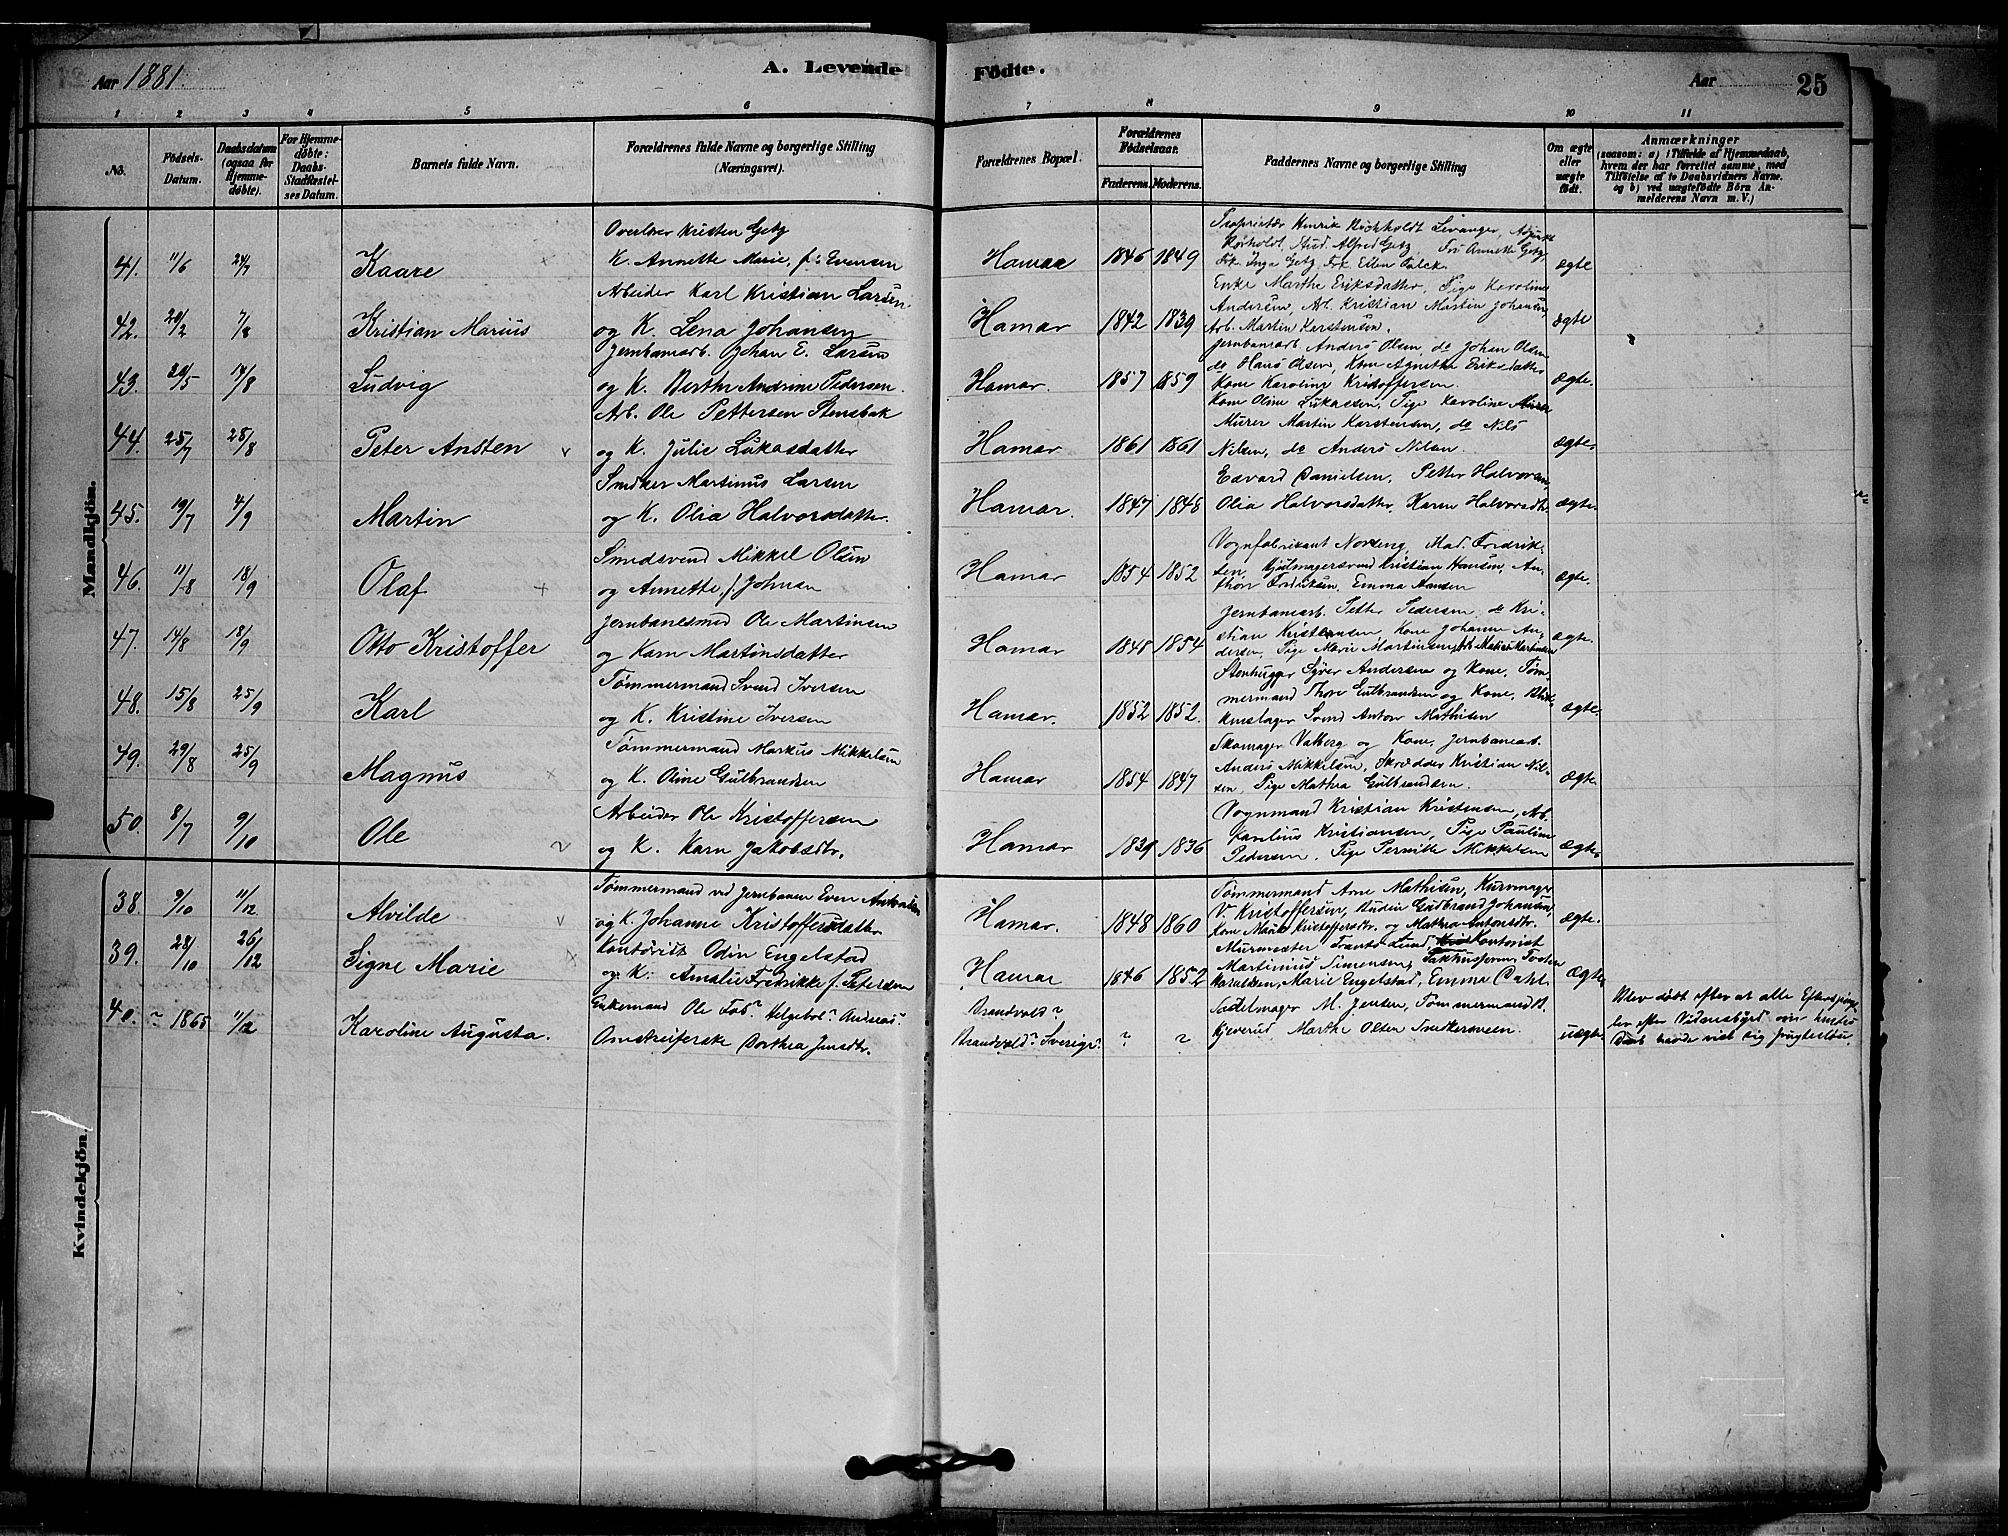 Aar 1881.
A. Levende Fødte.
Aar
25
1 2 3 4 5 6 7 8 9 10 11
No.
Fødsels-Datum.
Daabsdatum (ogsaa for Hjemmedøbte).
For Hjemmedøbte: Daabs-Stadfæstelses Datum.
Barnets fulde Navn.
Forældrenes fulde Navne og borgerlige Stilling (Næringsvei).
Forældrenes Bopæl.
Forældrenes Fødselsaar.
Faderens. Moderens.
Faddernes Navne og borgerlige Stilling
Om ægte eller uægte født.
Anmærkninger
(saasom: a) i Tilfælde af Hjemmedaab, hvem der har forrettet samme, med Tilføielse af to Daabsvidners Navne, og b) ved uægtefødte Børn Anmelderens Navn m. V.)
Mandkjön.
41. 11/6 24/7 Kaare
Overlærer Kristen Getz
K. Annette Marie, f: Evensen
Hamar 1846 1849
Stud. Alfred Getz, Fru Annette Getz,
Frk. Inga Getz, Frk. Ellen Falck
ægte
42. 20/2 7/8 Kristian Marius
Arbeider Karl Kristian Larsen
og K. Lena Johansen
Hamar 1842 1839
Enke Marthe Eriksdatter, Pige Karoline
Andersen, Arb. Kristian Martin Johansen,
Arb. Martin Karstensen.
ægte
43. 29/5 14/8 Ludvig
Jernbanearb. Johan E. Larsen
og K. Berthe Andrine Pedersen.
Hamar. 1857 1859
Jernbanearb. Anders Olsen, do Johan Olsen
do Hans Olsen, Kone Agnethe Eriksdatter
Kone Karoline Kristoffersen.
ægte.
44. 25/7 28/8 Peter Ansten
Arb. Ole Pettersen Stensbak
og K. Julie Lukasdatter
Hamar 1861 1861
Kone Oline Lukassen, Pige Karoline
Murer Martin Karstensen, do Nils
Nilsen, do Anders Nilsen.
ægte.
45. 19/7 4/9 Martin
Snedker Martinus Larsen
og K. Olia Halvorsdatter.
Hamar. 1847 1848
Edvard Danielsen, Petter Halvorsen
Olia Halvorsdatter, Karen Halvorsdtr.
ægte.
46. 11/8 18/9 Olaf
Smedsvend Mikkel Olsen
og Annette, f. Johnsen
Hamar 1854 1852
Vognfabrikant Noreng, Mad. Fredrik-
sen, Hjulmagersvend Kristian Hansen, An-
thon Fredriksen, Emma Hansen
ægte.
47. 14/8 18/9 Otto Kristoffer
Jernbanesmed Ole Martinsen
og Karn Martinsdatter
Hamar 1848 1854
Jernbanearb. Petter Pedersen, do Kri-
stian Kristensen, Kone Johanne An-
dersen, Pige Marie Martinsen,
ægte.
48. 15/8 25/9 Karl
Tømmermand Svend Iversen
og K. Kristine Iversen
Hamar. 1852 1852.
Stenhugger Syver Andersen og Kone, Tøm-
mermand Thore Gulbrandsen og Kone, Blik-
kenslager Svend Anton Mathisen
ægte.
49. 29/8 25/9 Magnus
Tømmermand Markus Mikkelsen
og K. Oline Gulbrandsen
Hamar 1854 1847
Skomager Valberg og Kone, Jernbanearb.
Anders Mikkelsen, Skrædder Kristian Nil-
sen, Pige Mathea Gulbrandsen.
ægte.
50. 8/7 9/10 Ole
Arbeider Ole Kristoffersen
og K. Karn Jakobsdtr.
Hamar 1839 1836
Vognmand Kristian Kristensen, Arb.
Kristiansen, Pige Pauline
Pedersen, Pige Pernille Mikkelsen
ægte.
Kvindekjön.
38. 9/10 11/12 Alvilde
Tømmermand ved Jernbanen Even
og K. Johanne Kristoffersdatter
Hamar. 1848 1860
Tømmermand Arne Mathisen, Kurvmager
V. Kristoffersen, Gudbrand Johansen,
Kone Marie Kristoffersdtr. og Mathea Antonsdtr.
ægte.
39. 28/10 26/12 Signe Marie
Kontorist Odin Engelstad
og K. Amalie Fredrikke f. Petersen
Hamar 1846 1852
Murmester Frants Lund, Kontorist
Martinius Simensen,
Marie Engelstad, Emma Dahl.
ægte
40. ? 1865 11/12 Karoline Augusta.
Enkemand Ole Helgebol? Andreas?
Omstreiferske Dorthea Jensdtr.
Brandvold?
Brandvold? Sverige?
? ?
Sadelmager M. Jensen, Tømmermand
Marthe Olsen
uægte.
Blev døbt efter at alle
lev efter Vidnesbyrd om hendes
Daab havde vist sig frugtesløse.